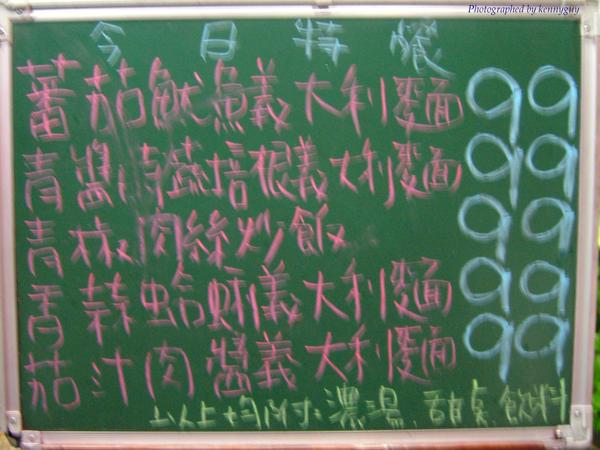 Photographed by kennyguy
今日特餐
蕃茄魷魚義大利麵 99
青醬時蔬培根義大利麵 99
青椒肉絲炒飯 99
香蒜蛤蜊義大利麵 99
茄汁肉醬義大利麵 99
以上均附:濃湯.甜點.飲料